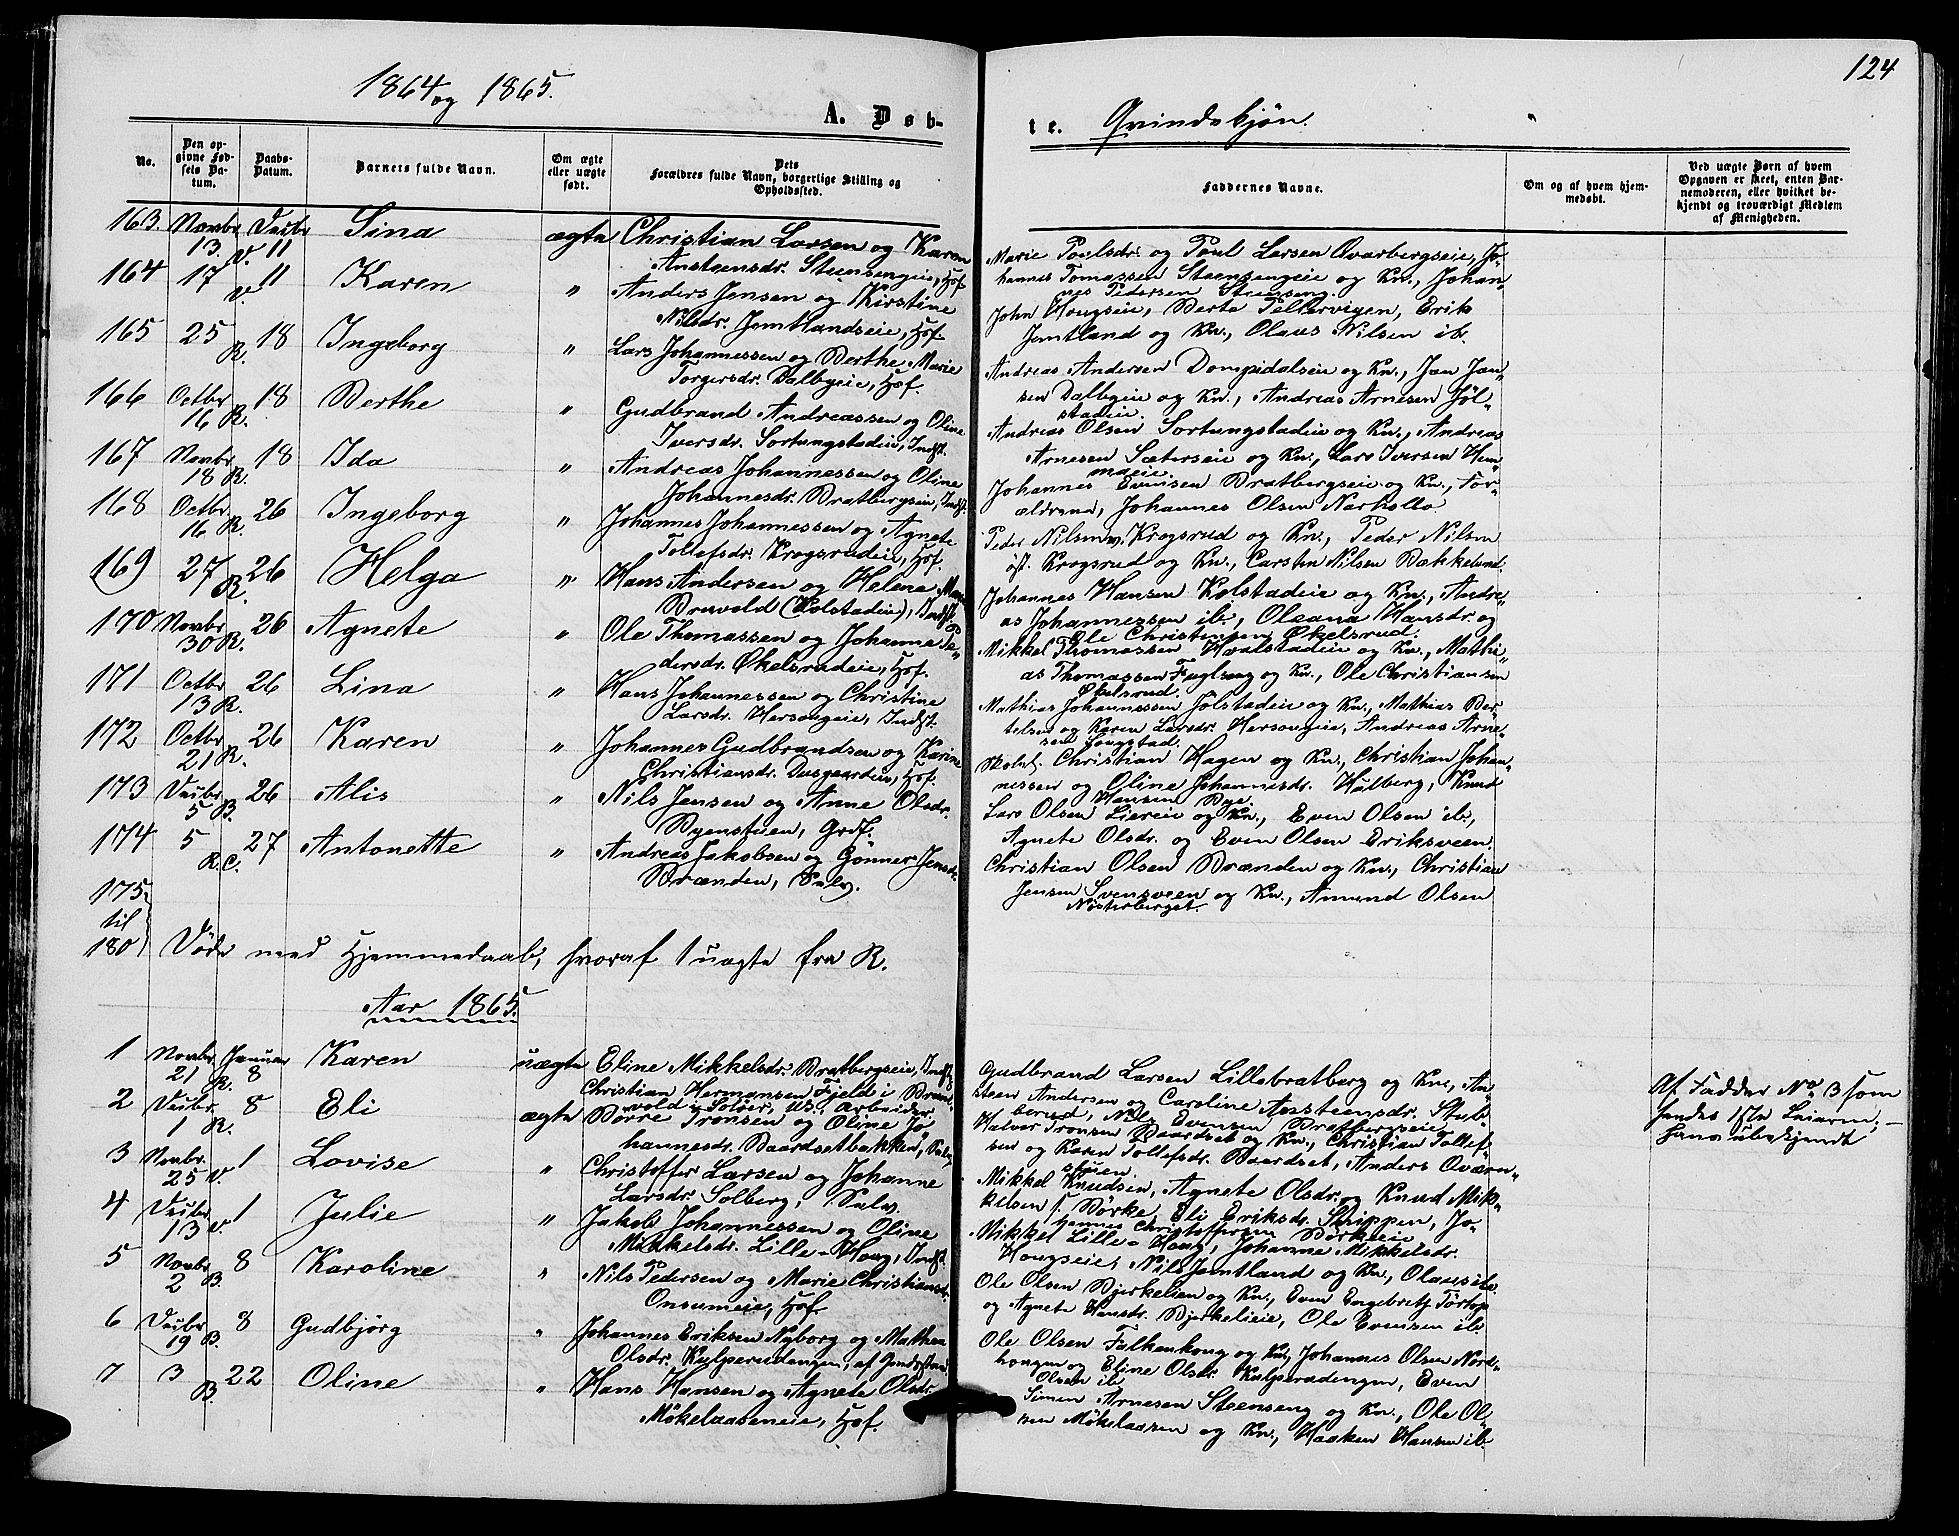 124
1864 og 1865.
A. Døb-
te. Qvindekjøn.
No.
Den op-
givne Fød-
sels Da-
tum.
Daabs-
Datum.
Barnets fulde Navn.
Om ægte
eller uægte
født.
Dets
Forældres fulde Navn, borgerlige Stilling og
Opholdssted.
Faddernes Navne.
Om og af hvem hjem-
medøbt.
Ved uægte Børn af hvem
Opgaven er skeet, enten Bar-
nemoderen, eller hvilket be-
kjendt og troværdigt Medlem
af Menigheden.
163. Novbr 13. Decbr V. 11 Sina ægte Christian Larsen og Karen
Ansteensdr. Steensengeie, Hof.
Marie Poulsdr. og Poul Larsen Qvarbergseie, Jo-
hannes Tomassen Steensengeie og Kn., Johan-
nes Pedersen Steenseng.
164 17 V. 11 Karen " Anders Jensen og Kirstine
Nilsdr. Jemtlandseie, Hof.
John Hougseie, Berte Pellervigen, Erik
Jemtland og Kn., Olaus Nilsen ib.
165 25 R. 18 Ingeborg " Lars Johannessen og Berthe Marie
Torgersdr. Dalbyeie, Hof.
Andreas Andersen Dompidalseie og Kn., Jan Jan-
sen Dalbyeie og Kn., Andreas Arnesen Jöl-
stadeie.
166 Octbr 16 R. 18 Berthe " Gudbrand Andreassen og Oline
Iversdr. Sortungstadeie, Indst.
Andreas Olsen Sortungstadeie og Kn., Andreas
Arnesen Sæterseie og Kn., Lars Iversen Hem-
maeie.
167 Novbr 18 R. 18 Ida " Andreas Johannessen og Oline
Johannesdr. Bratbergseie, Indst.
Johannes Evensen Bratbergseie og Kn., For-
ældrene, Johannes Olsen Narkollo
168 Octbr 16 R. 26 Ingeborg " Johannes Johannessen og Agnete
Tollefsdr. Krogsrudeie, Hof.
Peder Nilsen v. Krogsrud og Kn., Peder Nilsen
öst. Krogsrud og Kn., Carsten Nilsen Bakkelund.
169 27 R. 26 Helga " Hans Andersen og Helene Marie
Bruvold (Kolstadeie), Indst.
Johannes Hansen Kolstadeie og Kn., Andre-
as Johannessen ib., Oleana Hansdr. og
Ole Christensen Økelsrud.
170 Novbr 30 R. 26 Agnete " Ole Thomassen og Johanne Pe-
dersdr. Økelsrudeie, Hof.
Mikkel Thomassen Hvalstadeie og Kn., Mathi-
as Thomassen Fuglseng og Kn., Ole Christiansen
Økelsrud.
171 Octbr 13 R. 26 Lina " Hans Johannessen og Christine
Larsdr. Hersougeie, Indst.
Mathias Johannessen Jölstadeie og Kn., Mathias Ber-
telsen og Karen Larsdr. Hersougeie, Andreas Arne-
sen Sougstad.
172 Octbr 21 R. 26 Karen " Johannes Gudbrandsen og Karine
Christiansdr. Dusgaardeie, Hof.
Skolel. Christian Hagen og Kn., Christian Johan-
nessen og Oline Johannesdr. Halberg, Knud
Hansen Bye.
173 Decbr 5 B. 26 Alis " Nils Jensen og Anne Olsdr.
Byenstuen, Grdf.
Lars Olsen Liereie og Kn., Even Olsen ib.,
Agnete Olsdr. og Even Olsen Eriksveen.
174 5 R.C. 27 Antonette " Andreas Jakobsen og Gönner Jensdr.
Brænden, Selv.
Christian Olsen Brænden og Kn., Christian
Jensen Svensveen og Kn., Amund Olsen
Nösterberget.
175
til
180 Döde med Hjemmedaab, hvoraf 1 uægte fra R.
Aar 1865.
1 Novbr 21 R. Januar 8 Karen uægte Eline Mikkelsdr. Bratbergseie, Indst.
Christian Hermansen Fjeld i Brand-
vold i Solöer, Us., Arbeider.
Gudbrand Larsen Lillebratberg og Kn., An-
steen Andersen og Caroline Ansteensdr. Stub-
berud, Nils Evensen Bratbergseie.
Af Fadder No 3 som
fandes
Hans ubekjendt
2 Decbr 1 R. 8 Eli ægte Börre Tronsen og Oline Jo-
hannesdr. Baardsetbakken, Selv.
Halvor Tronsen Baardset og Kn., Christian Tollef-
sen og Karen Tollefsdr. Baardset, Anders Qværn-
stuen.
3 Novbr. 25 V. 1 Lovise " Christoffer Larsen og Johanne
Larsdr. Solberg, Selv.
Mikkel Knudsen, Agnete Olsdr. og Knud Mik-
kelsen S. Börke, Eli Eriksdr. Strippen, Jo-
hannes Christoffersen Börkeeie
4 Decbr. 13 V. 1 Julie " Jakob Johannessen og Oline
Mikkelsdr. Lille-Houg, Indst.
Mikkel Lille-Houg, Johanne Mikkelsdr.
Hougseie, Nils Jemtland og Kn., Olaus ib.
5 Novbr 2 B. 8 Karoline " Nils Pedersen og Marie Christiansdr.
Onsumeie, Hof.
Ole Olsen Bjerkelien og Kn., Even Engebretsen Törtop
og Agnete Hansdr. Bjerkelieie, Ole Evensen ib.
6 Decbr 19 B. 8 Gudbjörg " Johannes Eriksen Nyborg og Mathea
Olsdr. Kulperudengen, af
Ole Olsen Falkenhoug og Kn., Johannes Olsen Nord-
hougen og Eline Olsdr. Kulperudengen, Even
Olsen ib.
7 3 B. 22 Oline " Hans Hansen og Agnete Olsdr.
Mökelaaseneie, Hof.
Simen Arnesen Steenseng og Kn., Ole Ol-
sen Mökelaasen og Kn., Haaken Hansen ib.